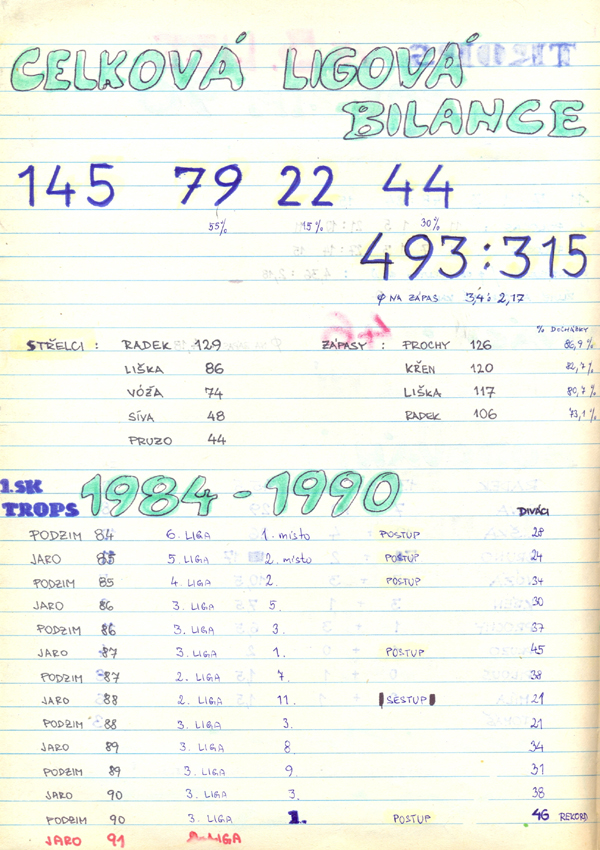 CELKOVÁ LIGOVÁ
BILANCE
145 79 22 44
55% 15% 30%
493:315
φ NA ZÁPAS 3,4 : 2,17
% DOCHÁZKY
STŘELCI : RADEK 129 ZÁPASY : PROCHY 126 86,9 %
LIŠKA 86 KŘEN 120 82,7 %
VÓŽA 74 LIŠKA 117 80,7 %
SÍVA 48 RADEK 106 73,1 %
PRUZO 44
1.SK
TROPS 1984 - 1990 DIVÁCI
PODZIM 84 6. LIGA 1. místo POSTUP 28
JARO 85 5. LIGA 2. místo POSTUP 24
PODZIM 85 4. LIGA 2. POSTUP 34
JARO 86 3. LIGA 5. 30
PODZIM 86 3. LIGA 3. 37
JARO 87 3. LIGA 1. POSTUP 45
PODZIM 87 2. LIGA 7. 38
JARO 88 2. LIGA 11. SESTUP 21
PODZIM 88 3. LIGA 3. 21
JARO 89 3. LIGA 8. 34
PODZIM 89 3. LIGA 9. 31
JARO 90 3. LIGA 3. 38
PODZIM 90 3. LIGA 1. POSTUP 46 REKORD
JARO 91 LIGA